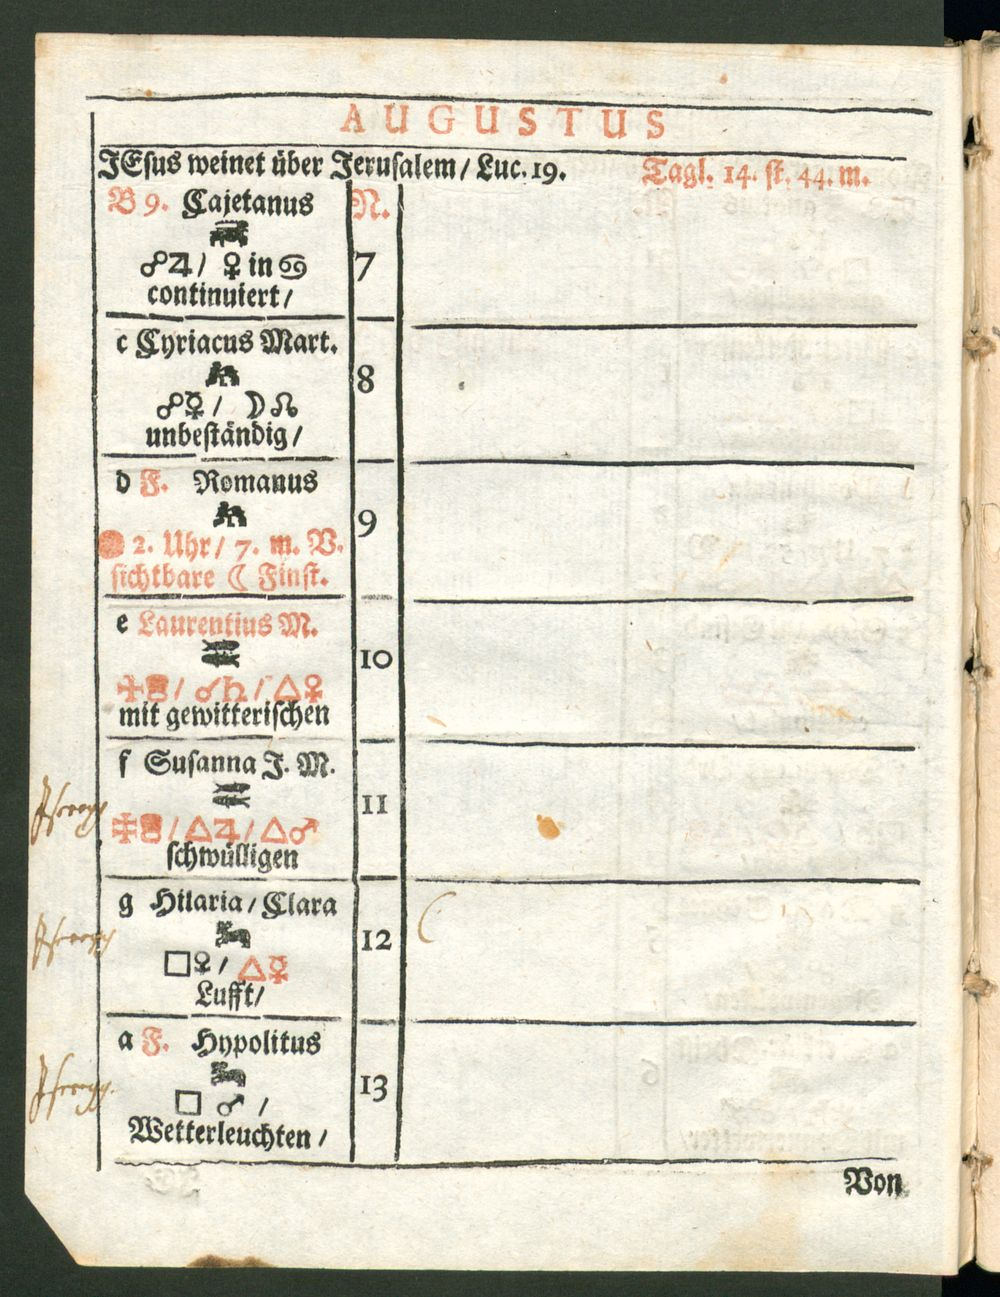 AUGUSTUS
JEsus weinet über Jerusalem / Luc. 19. Tagl. 14. st. 44. m.
B 9. Cajetanus N.
☍♃ / ♀ in ♋ 7
continuiert /
c Cyriacus Mart.
8
☍☿ / ☽☊
unbeständig /
d F. Romanus
9
2. Uhr / 7. m. V.
sichtbare ☾ Finst.
e Laurentius M.
10
/ ☌♄ / △♀
mit gewitterischen
f Susanna J. M.
11
/ △♃ / △♂
schwülligen
g Hilaria / Clara
12
□♀ / △☿
Lufft /
a F. Hypolitus
13
□ ♂ /
Wetterleuchten /
Von